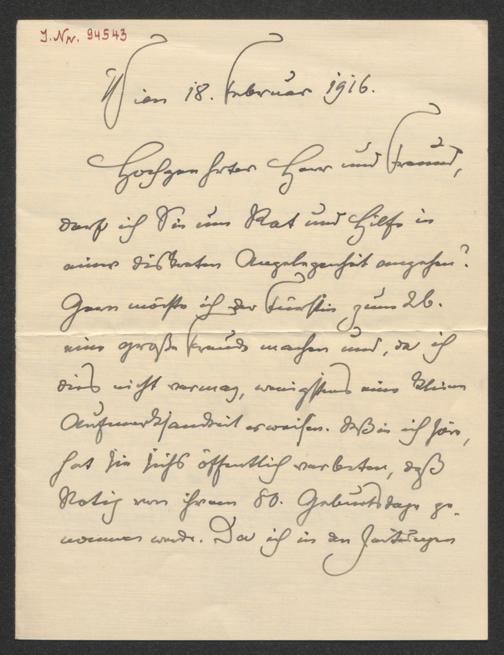 J.Nr. 94543
Wien 18. Februar 1916.
Hochgeehrter Herr und Freund,
darf ich Sie um Rat und Hilfe in
einer diskreten Angelegenheit angehen?
Gern möchte ich der Fürstin zum 26.
eine große Freude machen und, da ich
dies nicht vermag, wenigstens eine kleine
Aufmerksamkeit erweisen. ich höre,
hat sie sichs öffentlich verbeten, daß
Notiz von ihrem 80. Geburtstage ge-
nommen werde. Da ich in den Zeitungen